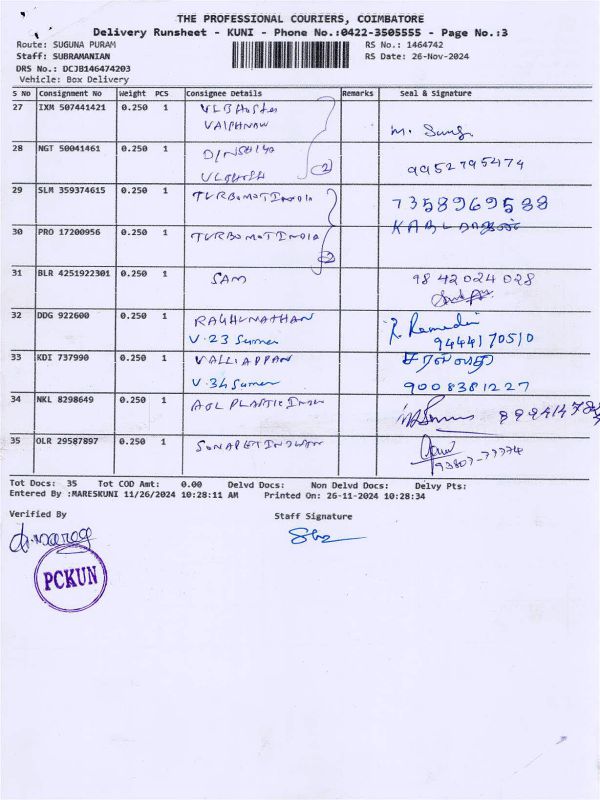 THE PROFESSIONAL COURIERS, COIMBATORE
Delivery Runsheet - KUNI - Phone No.:0422-3505555 - Page No.:3
Route: SUGUNA PURAM
RS No.: 1464742
Staff: SUBRAMANIAN
RS Date: 26-Nov-2024
DRS No.: DCJB146474203
Vehicle: Box Delivery
S No Consignment No Weight PCS Consignee Details Remarks Seal & Signature
27 IXM 507441421 0.250 1
M.
28 NGT 50041461 0.250 1
9952795474
2
29 SLM 359374615 0.250 1 TURBOMOT INDIA 7358969588
30 PRO 17200956 0.250 1 TURBOMOT INDIA
2
31 BLR 4251922301 0.250 1 SAM 9842024028
32 DDG 922600 0.250 1 RAGHUNATHAN
V.23 Sumer 9444170510
33 KDI 737990 0.250 1 VALLIAPPAN
V.34 Sumer 9008381227
34 NKL 8298649 0.250 1 AGL PLASTIC
35 OLR 29587897 0.250 1
Tot Docs: 35 Tot COD Amt: 0.00 Delvd Docs: Non Delvd Docs: Delvy Pts:
Entered By :MARESKUNI 11/26/2024 10:28:11 AM Printed On: 26-11-2024 10:28:34
Verified By
Staff Signature
PCKUN